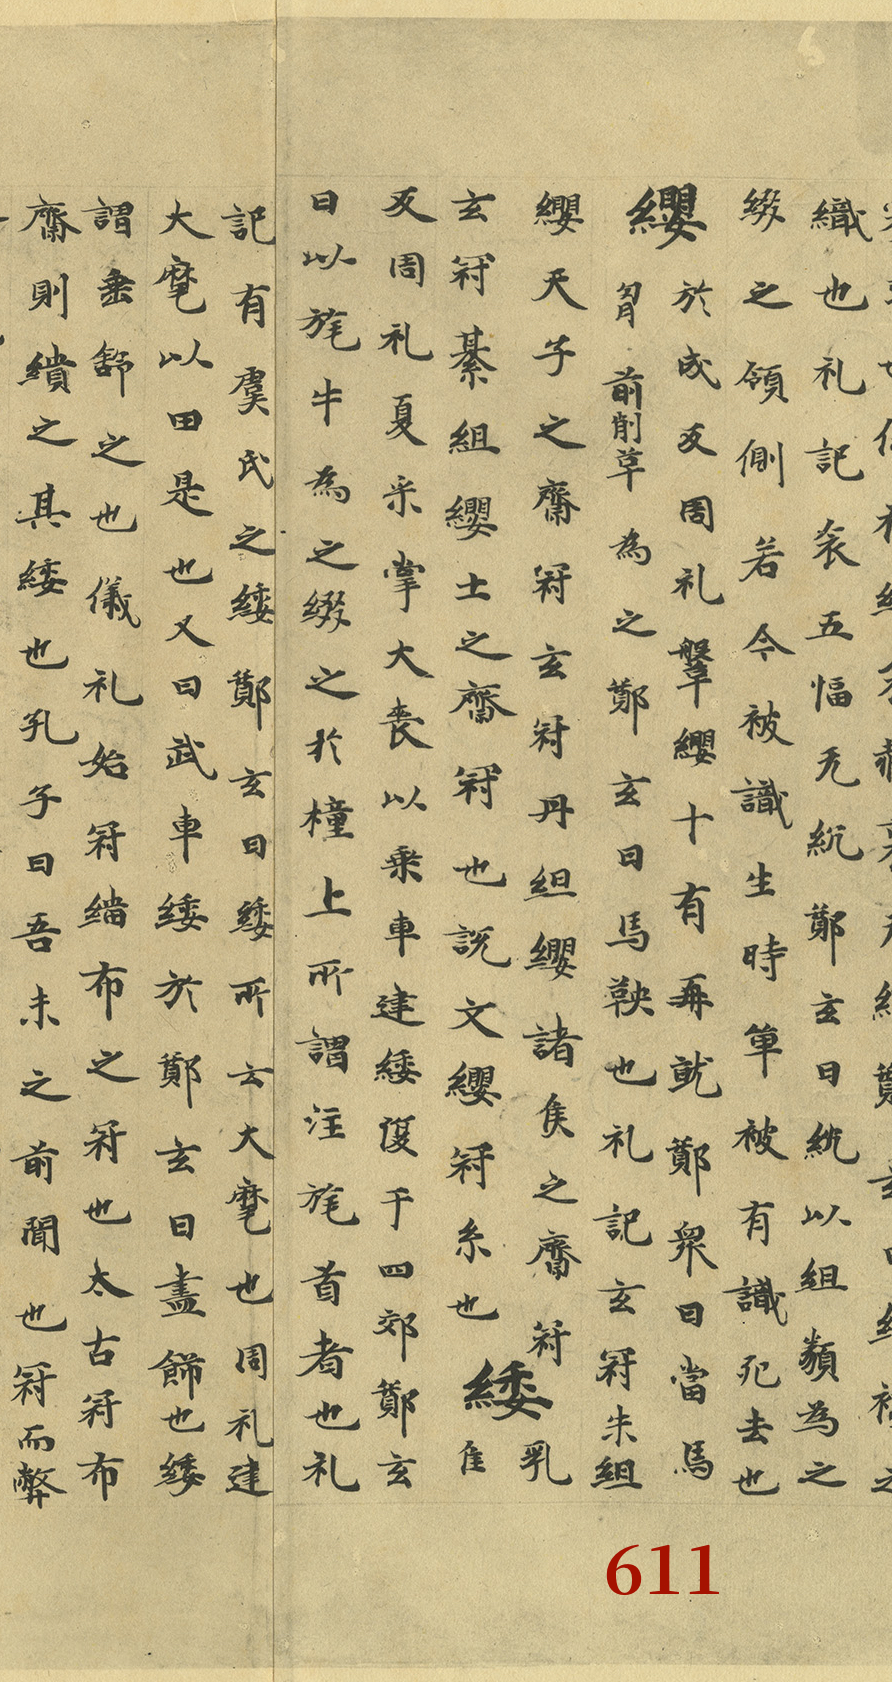 織也礼記衾五幅无紞鄭玄曰紞以組類為之
綴之領側若今被識生時箄被有識死去也
纓 於成反周礼鞶纓十有再就鄭衆曰當馬
胷前削草為之鄭玄曰馬鞅也礼記玄冠朱組
纓天子之齋冠玄冠丹組纓諸侯之齋冠
玄冠綦組纓士之齋冠也説文纓冠糸也 緌 乳隹
反周礼夏采掌大喪以乗車建緌復于四郊鄭玄
曰以旄牛為之綴之於橦上所謂注旄首者也礼
記有虞氏之緌鄭玄曰緌所云大麾也周礼建
大麾以田是也又曰武車緌於鄭玄曰盡飾也緌
謂垂舒之也儀礼始冠緇布之冠也太古冠布
齋則繢之其緌也孔子曰吾未之前聞也冠而弊
611